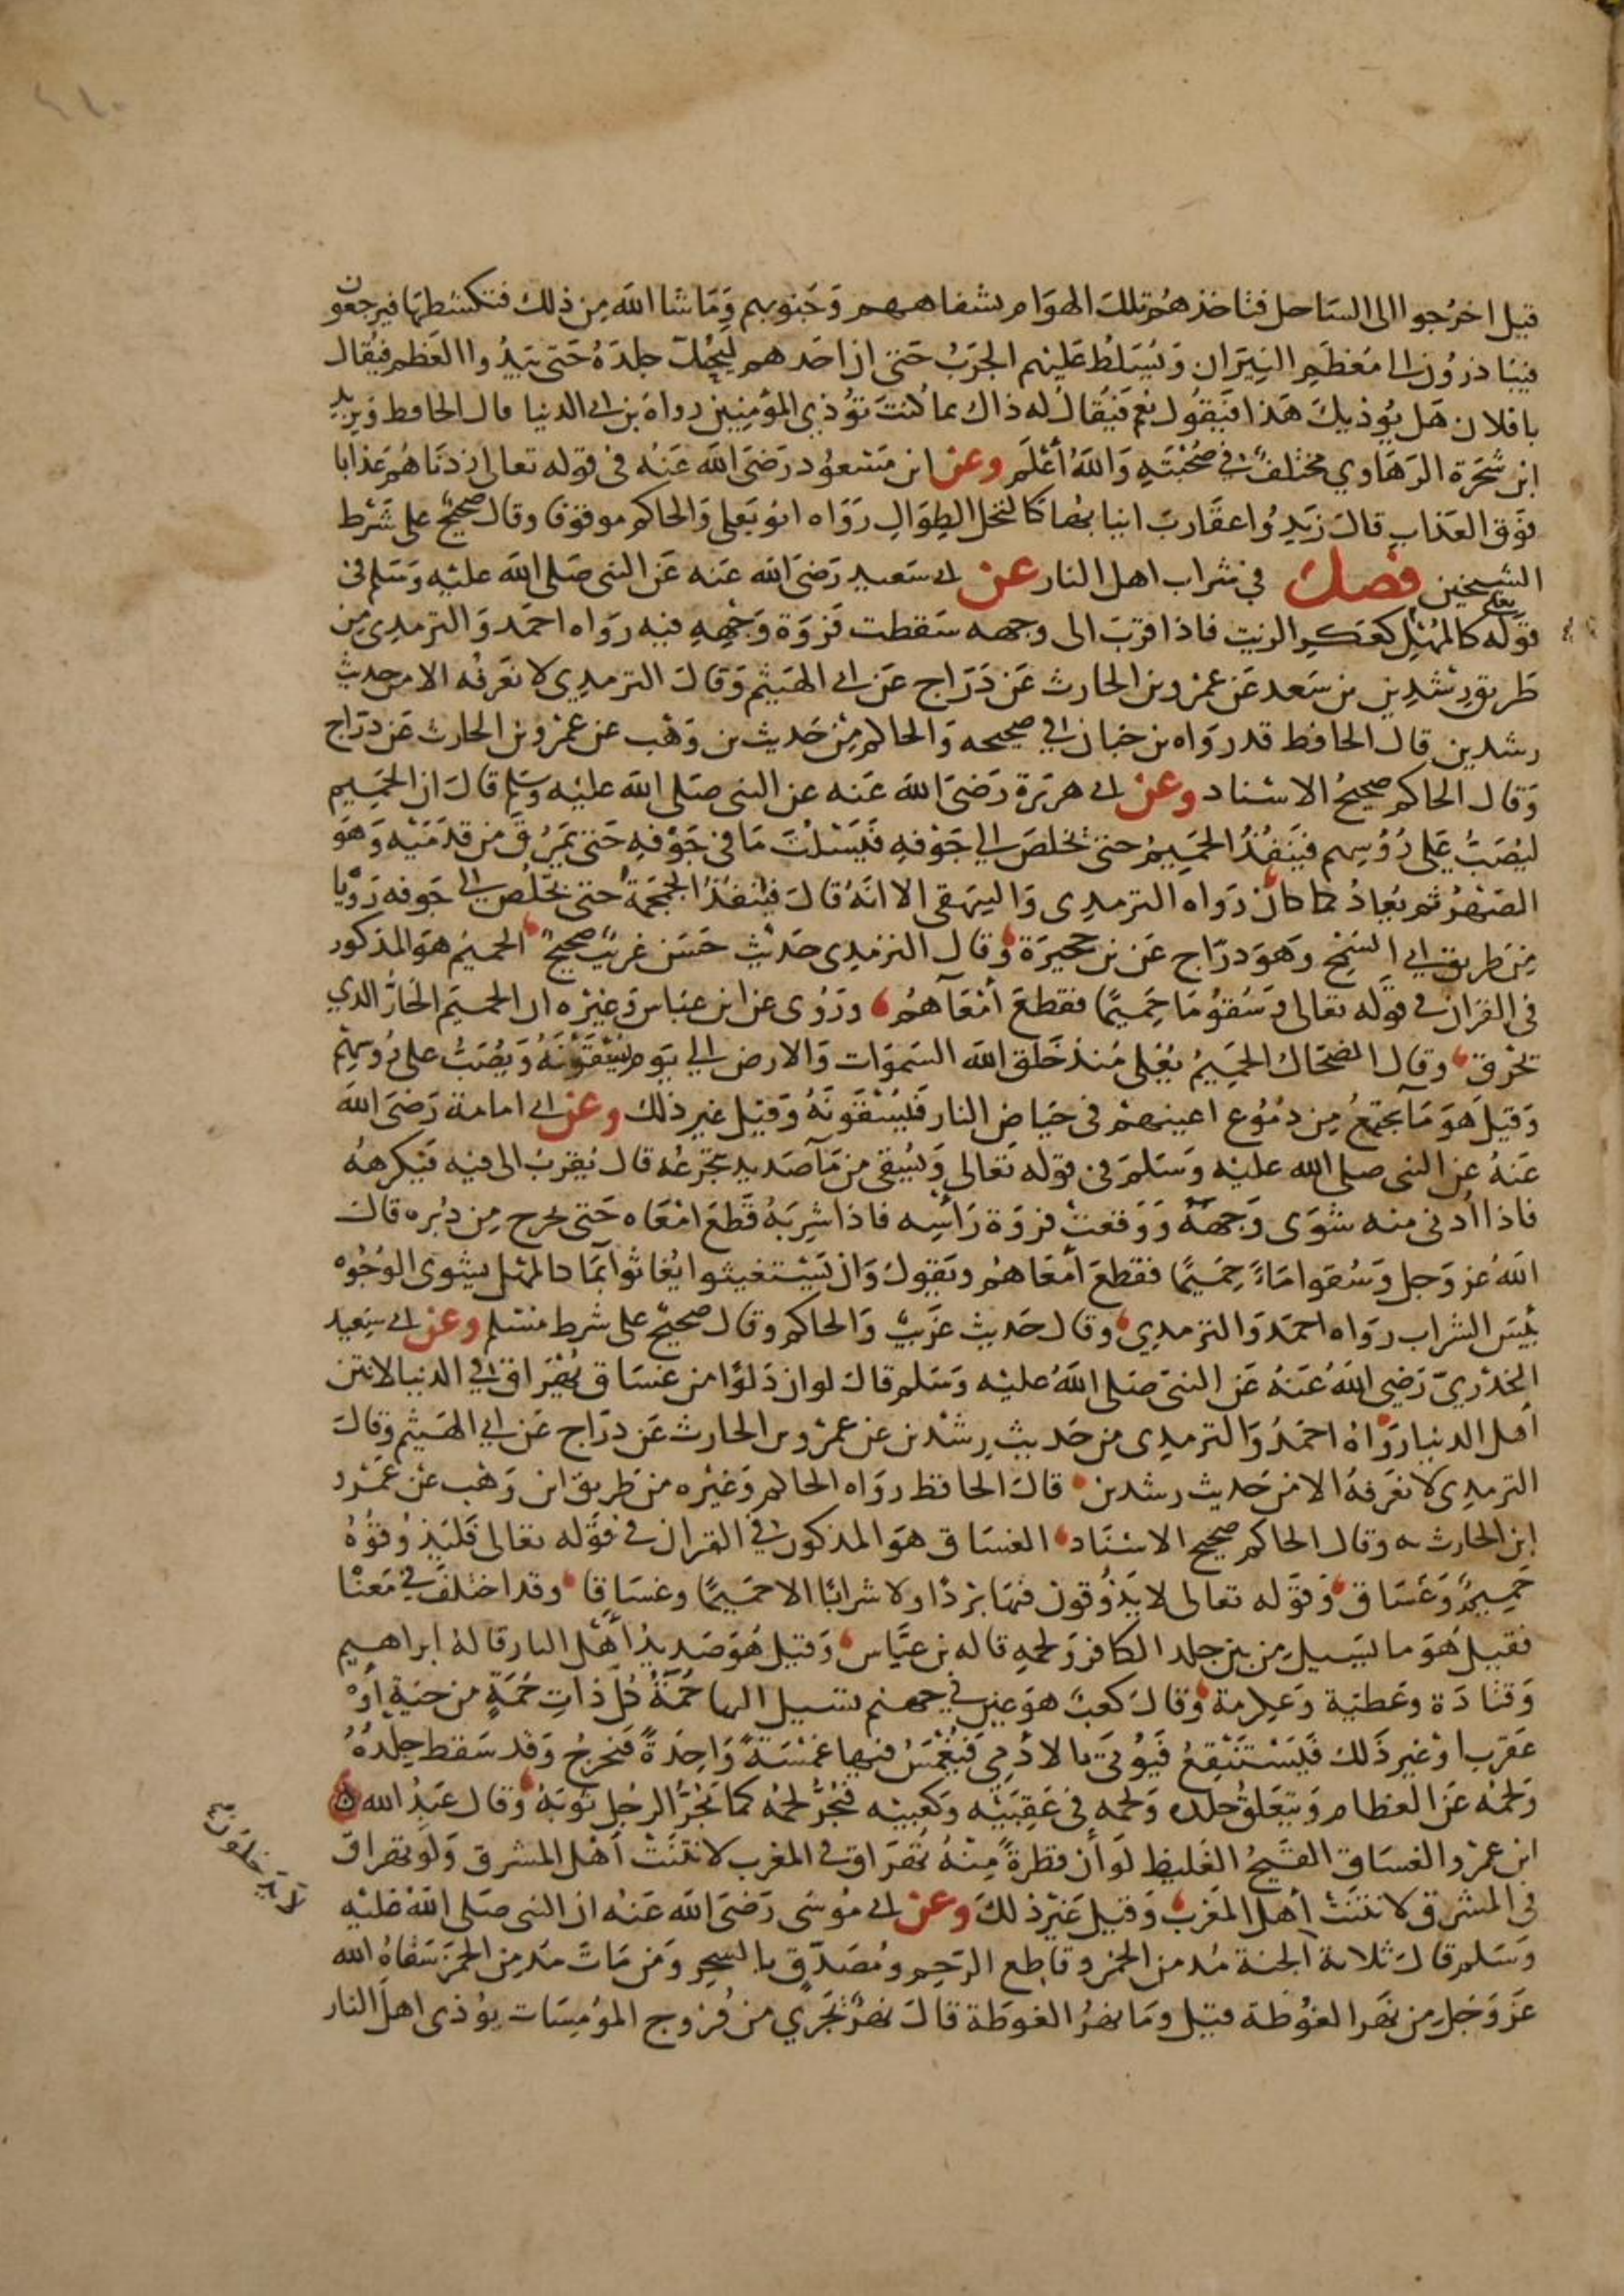 قيل اخرُجوا الى السَاحل فتاخذهُم تلك الهوَام بشفاههم وَجنوبهم وَمَا شا اللهَ مِن ذلك فتكشطها فيرجعون
فيبَادرُون الى مُعْظَمِ النِيَران وَيُسَلطُ عَليْهم الجَرَبُ حَتى ان احَدهم ليَحُكّ جِلدَهُ حَتى يَبدُوا العَظم فيُقال
يا فلان هَل يُوذيكَ هَذا فيَقُول نَعم فيُقالُ له ذاك بما كُنتَ تؤذي المؤمِنين رواهُ بن ابي الدنيا قال الحَافظ وَيزيد
ابن شَجَرَة الرَهَاوي مختلفٌ في صُحْبَتِهِ وَاللهُ أعْلَم وعن ابن مَسْعوُد رَضىَ اللهَ عَنْه فى قوله تعالى زدنَاهُمْ عَذابا
فوَق العَذابِ قالَ زيدوُا عقَاربَ انيابهُا كالنخل الطِوَالِ رَوَاه ابوُيَعلى وَالحاكم موقوفا وقال صَحيحٌ على شَرْط
الشيخين فصل في شراب اهل النار عن ابى سَعيد رَضىَ الله عَنه عَن النبى صَلى اللهَ عليْهِ وَسَلم فى
قوَله تعالى كالمُهْلِ كعَكرِ الزيت فاذا قربَ الى وجهه سَقطت فرْوَة وَجْههِ فيه روَاه احمَد وَالترمدِى مِن
طَريقِ رشْدِين بن سَعد عَن عمْرو بن الحارث عَن دَرّاج عَن ابى الهَيثم وَقالَ الترمدِى لا نعَرفُه الا من حديث
رشدين قال الحافظ قد روَاه بن حبَان في صحيحه وَالحاكم مِنْ حَديث بن وَهْب عن عمْرو بن الحارث عَن درّاج
وَقال الحاكم صحيحُ الاسْناد وعن ابى هريَرة رَضىَ اللهَ عَنه عن النبى صَلى اللهَ عليْه وسَلم قالَ ان الحَمِيم
ليُصَبُّ عَلى رُؤسِهم فيَنْفُذُ الحَمِيمُ حتى يخلصَ الي جَوْفهِ فَيَسْلُتَ مَا في جَوْفهِ حَتى يَمرُقَ مِن قدَمَيْه وَهَوَ
الصَهْرُ ثم يُعادُ كما كان رَوَاه الترمدِى وَالبيهقى الا انهُ قالَ فيَنفذُ الجُمْجُمَةَ حتىَ يَخلُصَ الى جَوفه رَوَيا
مِن طريق ابي السَمْح وَهوَ درّاج عَن بن حجيرَة وقال الترمدِى حَدَيثٌ حَسَن غريبٌ صحيحٌ الحميمُ هوَ المذكور
فى القرَان في قوَله تعالى وَسُقوُا مَا حِميمًا فقطعَ أمْعَآهُم ورَوُى عن ابن عبَاس وَغيْره ان الحميَم الحَارُّ الدي
يَحْرق وقال الضحَاك الحَمِيمُ يُغلى مُنذ خَلق اللهَ السَموَات وَالارض الي يَوم يُسْقوَنَهُ وَيُصَبُّ على رُوسهم
وَقيلَ هَوَ مَا يجتمعُ مِن دمُوُع اعينهمْ فى حيَاض النار فَيُسْقوَنَهُ وَقيْل غير ذلك وعن ابى امامة رَضىَ اللهَ
عَنهُ عن النبى صلى الله عليْه وَسَلمَ فى قوله تعَالى وَيُسْقى من مَآ صَديد يتجَرعُه قال يُقربُ الى فيْه فيَكرهُهُ
فاذا اُدنى منه شَوَى وَجهَهُ وَوَقعَتْ فرْوَة رَاسِه فاذا شرِبَهُ قَطعَ امْعَاه حَتى يخرج مِن دُبره قالَ
اللهُ عز وَجل وَسُقوا مَاءً حِمَيمًا فقطعَ أمْعَاهُم ويَقولُ وَان يَسْتغيثوا يُغاثوا بمَا كالمهْل يشوى الوُجُوْه
بئِسَ الشراب روَاه احمدَ وَالترمدِي وقال حَديث غرَيبٌ وَالحاكم وقال صَحيحٌ على شرط مسْلم وعن ابى سَعِيد
الخدْريّ رَضِىَ اللهُ عَنهُ عَن النبىَ صَلى اللهُ عليْه وَسَلم قالَ لو ان دَلوًا من غسَاق يُهْرَاق فى الدنيا لانتن
أهل الدنيا رَوَاهُ احمَدُ وَالترمدِى من حَديثِ رِشْدين عن عمْرو بن الحارث عَن درّاج عَن ابى الهَيثم وَقالَ
الترمدِى لا نعَرفهُ الا مِن حَديث رشدين قالَ الحافظ روَاه الحاكم وَغيْره من طَريق ابن وَهْب عن عَمْرو
ابن الحارث به وقال الحاكم صَحيح الاسْنَاد الغسَاق هوَ المذكور في القران في قوَله تعالى فَليَذوُقوُهُ
حَمِيمٌ وَغَسَاق وَقوَله تعالى لا يَذوُقون فيهَا برْدًا ولا شرابًا الا حمَيمًا وغسَاقا وقد اختلفَ في مَعنْا
فقيلَ هُوَ ما يسَيل مِن بين جلد الكافر وَلحمهِ قاله بن عبَّاس وَقيل هُوَ صَديدُ أهْل النار قالهُ ابراهيم
وَقتادَة وعَطيَة وَعكِرمة وَقالَ كعَبٌ هوَ عين في جهنم تسَيل اليهَا حُمَةُ كُل ذاتِ حُمَةٍ من حَيَةٍ أوْ
عَقرب اوْ غير ذَلك فَيَسْتَنْقِعُ فَيؤتى بالادَمِي فيُغْمَسُ فيها غمْسَةً وَاحِدَةً فَيَخرجُ وَقد سَقط جِلدُهُ
وَلحمُه عَن العظام وَيَتعَلقُ جلده وَلحمه فى عَقِبَيْه وَكعْبيْه فيَجُرُّ لحْمُه كما يَجُرُّ الرجُل ثوَبَهُ وَقال عَبدُ الله
ابن عمرْو الغسَاق القيحُ الغَليظ لوَأن قطرةً مِنْهُ تُهرَاق فى المغرب لانتنَتْ أهْل المشرق وَلَو تهراق
فى المشرق لانتنَتْ أهل المغرب وَقيْل غَيْر ذلكَ وعن ابى موُسَى رَضىَ اللهَ عَنْه ان النبى صَلى اللهَ عليْه
وَسَلم قالَ ثلاثة الجنة مُدمن الخمر وقاطع الرَحِم ومُصَدّق بالسِحر وَمَن مَاتَ مدمِن الخمرَ سَقاهُ الله
عَز وَجَل مِن نهَر الغوُطة قيل ومَا نهرُ الغوطَة قالَ نهرٌ يَجَري من فُروج المؤمِسَات يؤذى اهلَ النار
لا يدخلون